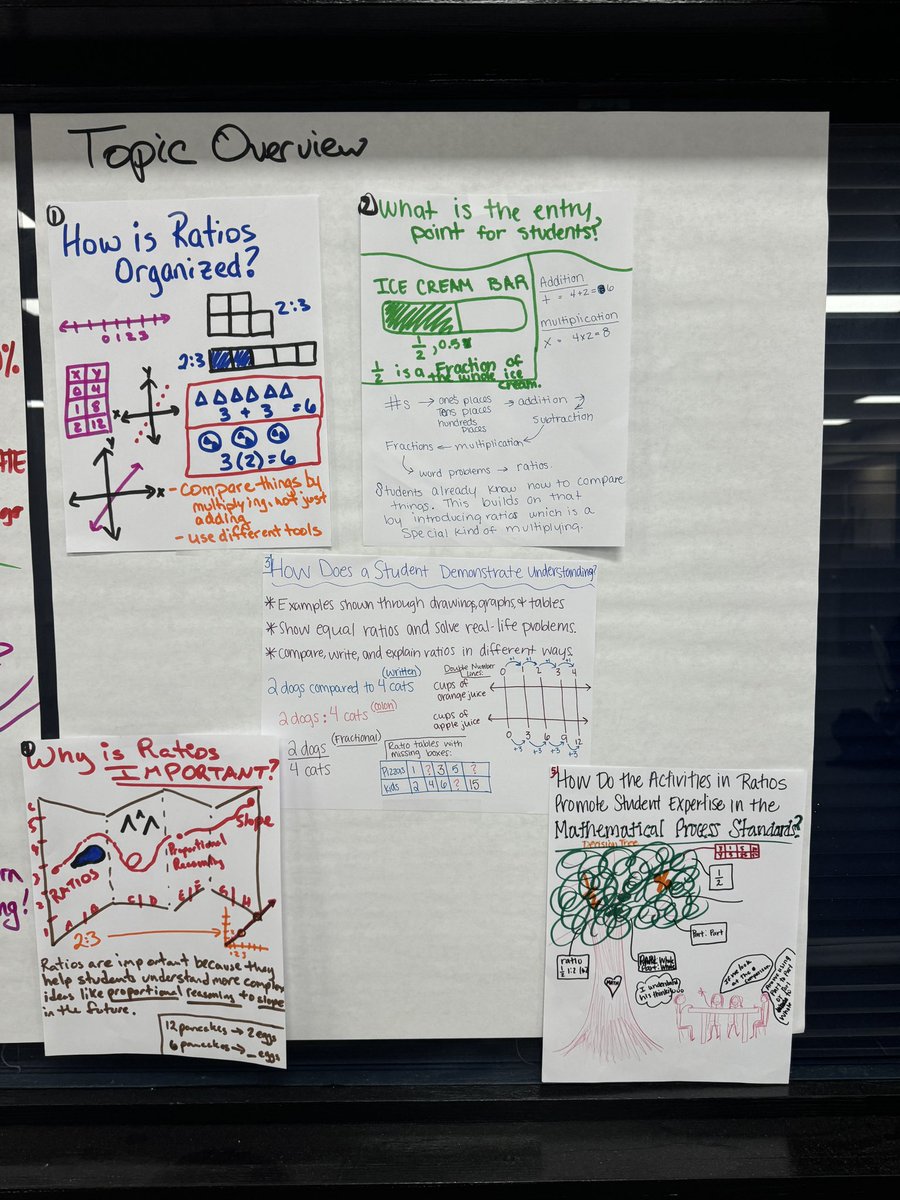 Topic Overview
1
How is Ratios
Organized?
0 1 2 3
2:3
2:3
x y
0 4
1 8
2 12
y
x
3 + 3 = 6
3(2) = 6
y
x
- compare things by
multiplying, not just
adding
- use different tools
2
What is the entry
point for students?
ICE CREAM BAR
1/2, 0.5
1/2 is a Fraction of
the whole ice
cream.
Addition
+ = 4+2=6
multiplication
x = 4x2=8
#s → one's places → addition
Tens places
hundreds
places
Subtraction
Fractions ← multiplication
word problems → ratios.
Students already know how to compare
things. This builds on that
by introducing ratios which is a
special kind of multiplying.
3
How Does a Student Demonstrate Understanding?
* Examples shown through drawings, graphs, & tables
* Show equal ratios and solve real-life problems.
* Compare, write, and explain ratios in different ways
2 dogs compared to 4 cats (written)
2 dogs : 4 cats (colon)
2 dogs (Fractional)
4 cats
Double Number
Lines:
+1 +1 +1 +1
0 1 2 3 4
cups of
orange juice
cups of
apple juice
0 3 6 9 12
+3 +3 +3 +3
Ratio tables with
missing boxes:
Pizzas 1 ? 3 5 ?
Kids 2 4 6 ? 15
4
Why is Ratios
IMPORTANT?
6
5
4
3
2
1
RATIOS
Proportional
Reasoning
Slope
A B C D E F G H
2:3
1 2 3
Ratios are important because they
help students understand more complex
ideas like proportional reasoning to slope
in the future.
12 pancakes → 2 eggs
6 pancakes → _ eggs
5
How Do the Activities in Ratios
Promote Student Expertise in the
Mathematical Process Standards?
Decision Tree
1/2
Part: Part
ratio
1/2 1:2
Part: Whole
I understand
his thinking...
If we look
at the
comparison
Are we using
Part to Part
or Part
to
Whole